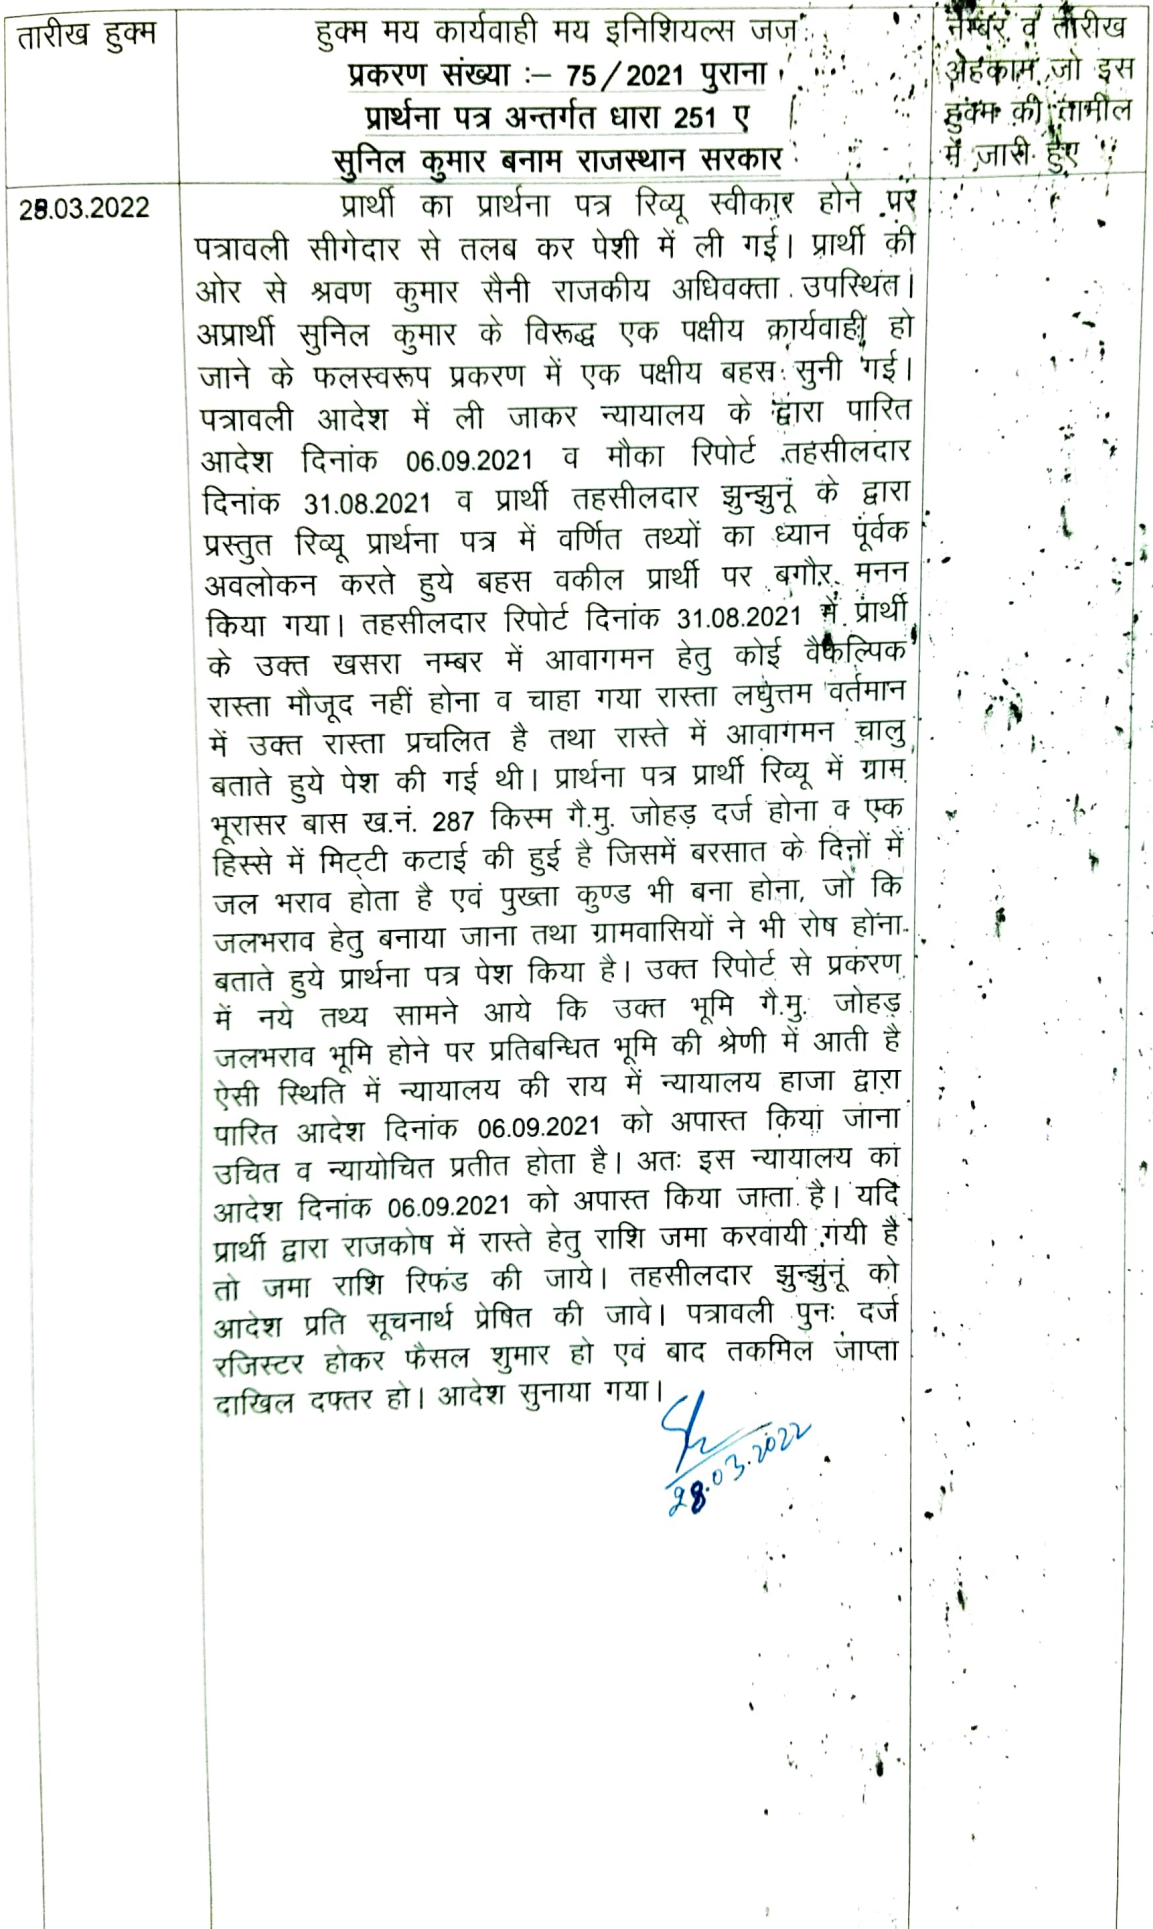 तारीख हुक्म
हुक्म मय कार्यवाही मय इनिशियल्स जज
प्रकरण संख्या :– 75/2021 पुराना
प्रार्थना पत्र अन्तर्गत धारा 251 ए
सुनिल कुमार बनाम राजस्थान सरकार
नम्बर व तारीख
अहकाम जो इस
हुक्म की तामील
में जारी हुए
28.03.2022
प्रार्थी का प्रार्थना पत्र रिव्यू स्वीकार होने पर
पत्रावली सीगेदार से तलब कर पेशी में ली गई। प्रार्थी की
ओर से श्रवण कुमार सैनी राजकीय अधिवक्ता उपस्थित।
अप्रार्थी सुनिल कुमार के विरूद्ध एक पक्षीय कार्यवाही हो
जाने के फलस्वरूप प्रकरण में एक पक्षीय बहस सुनी गई।
पत्रावली आदेश में ली जाकर न्यायालय के द्वारा पारित
आदेश दिनांक 06.09.2021 व मौका रिपोर्ट तहसीलदार
दिनांक 31.08.2021 व प्रार्थी तहसीलदार झुन्झुनूं के द्वारा
प्रस्तुत रिव्यू प्रार्थना पत्र में वर्णित तथ्यों का ध्यान पूर्वक
अवलोकन करते हुये बहस वकील प्रार्थी पर बगौर मनन
किया गया। तहसीलदार रिपोर्ट दिनांक 31.08.2021 में प्रार्थी
के उक्त खसरा नम्बर में आवागमन हेतु कोई वैकल्पिक
रास्ता मौजूद नहीं होना व चाहा गया रास्ता लघुत्तम वर्तमान
में उक्त रास्ता प्रचलित है तथा रास्ते में आवागमन चालु
बताते हुये पेश की गई थी। प्रार्थना पत्र प्रार्थी रिव्यू में ग्राम
भूरासर बास ख.नं. 287 किस्म गै.मु. जोहड़ दर्ज होना व एक
हिस्से में मिट्टी कटाई की हुई है जिसमें बरसात के दिनों में
जल भराव होता है एवं पुख्ता कुण्ड भी बना होना, जो कि
जलभराव हेतु बनाया जाना तथा ग्रामवासियों ने भी रोष होना
बताते हुये प्रार्थना पत्र पेश किया है। उक्त रिपोर्ट से प्रकरण
में नये तथ्य सामने आये कि उक्त भूमि गै.मु. जोहड़
जलभराव भूमि होने पर प्रतिबन्धित भूमि की श्रेणी में आती है
ऐसी स्थिति में न्यायालय की राय में न्यायालय हाजा द्वारा
पारित आदेश दिनांक 06.09.2021 को अपास्त किया जाना
उचित व न्यायोचित प्रतीत होता है। अतः इस न्यायालय का
आदेश दिनांक 06.09.2021 को अपास्त किया जाता है। यदि
प्रार्थी द्वारा राजकोष में रास्ते हेतु राशि जमा करवायी गयी है
तो जमा राशि रिफंड की जाये। तहसीलदार झुन्झुंनूं को
आदेश प्रति सूचनार्थ प्रेषित की जावे। पत्रावली पुनः दर्ज
रजिस्टर होकर फैसल शुमार हो एवं बाद तकमिल जाप्ता
दाखिल दफ्तर हो। आदेश सुनाया गया।
28.03.2022